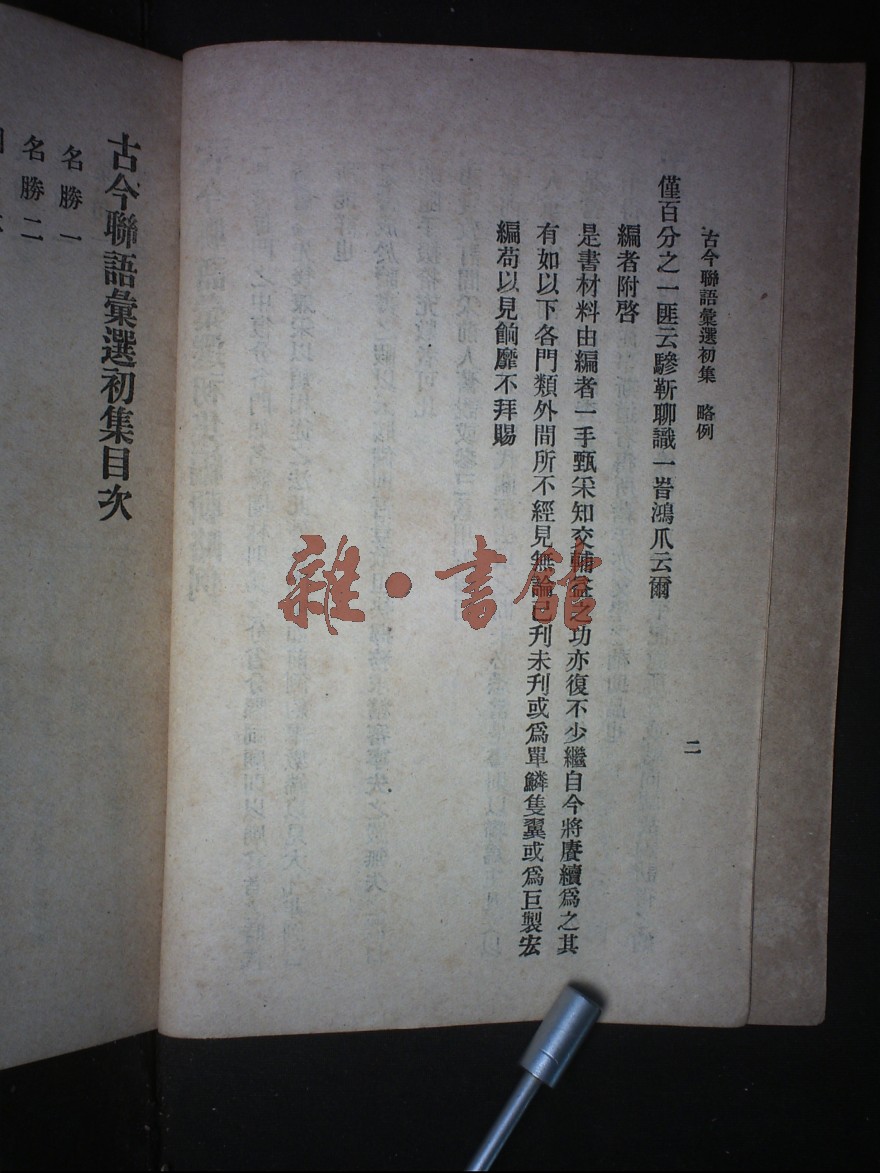 古今聯語彙選初集　略例
二
僅百分之一匪云驂靳聊識一時鴻爪云爾
編者附啓
是書材料由編者一手甄采知交輔益之功亦復不少繼自今將賡續爲之其
有如以下各門類外間所不經見無論已刋未刋或爲單鱗隻翼或爲巨製宏
編苟以見餉靡不拜賜
古今聯語彙選初集目次
名勝一
名勝二
雜·書館